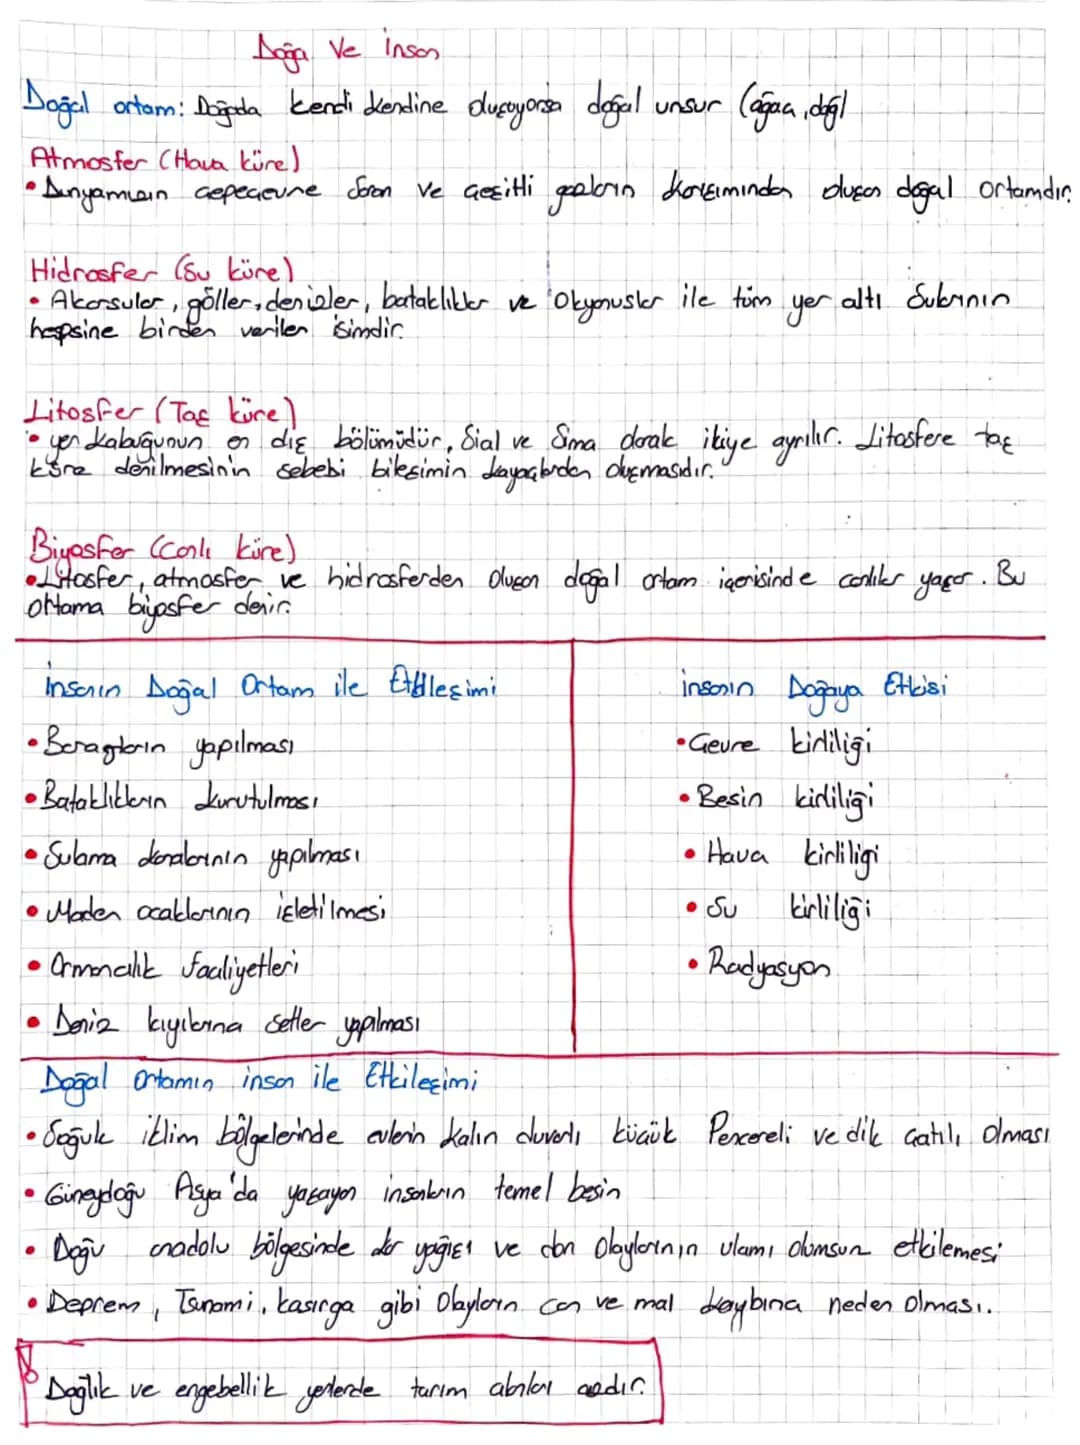 Doğa Ve İnsan
Doğal ortam: Doğada kendi kendine oluşuyorsa doğal unsur (ağaç, dağ)
Atmosfer (Hava küre)
• Dünyamızın çepeçevre saran ve çeşitli gazların karışımından oluşan doğal ortamdır.
Hidrosfer (Su küre)
• Akarsular, göller, denizler, bataklıklar ve Okyanuslar ile tüm yer altı Sularının
hepsine birden verilen isimdir.
Litosfer (Taş küre)
• yer kabuğunun en dış bölümüdür, Sial ve Sima olarak ikiye ayrılır. Litosfere taş
küre denilmesinin sebebi bileşimin kayaçlardan oluşmasıdır.
Biyosfer (Canlı küre)
• Litosfer, atmosfer ve hidrosferden oluşan doğal ortam içerisinde canlılar yaşar. Bu
ortama biyosfer denir.
İnsanın Doğal Ortam ile Etkileşimi
• Barajların yapılması
• Bataklıkların kurutulması
• Sulama kanalarının yapılması
• Maden ocaklarının işletilmesi
• Ormancılık faaliyetleri
• Deniz kıyılarına setler yapılması
insanın Doğaya Etkisi
• Çevre kirliliği
• Besin kirliliği
• Hava kirliligi
• Su kirliliği
• Radyasyon
Doğal Ortamın insan ile Etkileşimi
• Soğuk iklim bölgelerinde evlerin kalın duvarlı küçük Pencereli ve dik çatılı Olması
• Güneydoğu Asya'da yaşayan insanların temel besin
• Doğu anadolu bölgesinde kar yağışı ve don Olaylarının ulamı olumsuz etkilemesi
• Deprem, Tsunami, kasırga gibi Olayların can ve mal kaybına neden Olması.
Dağlık ve engebellik yerlerde tarım alanları azdır.